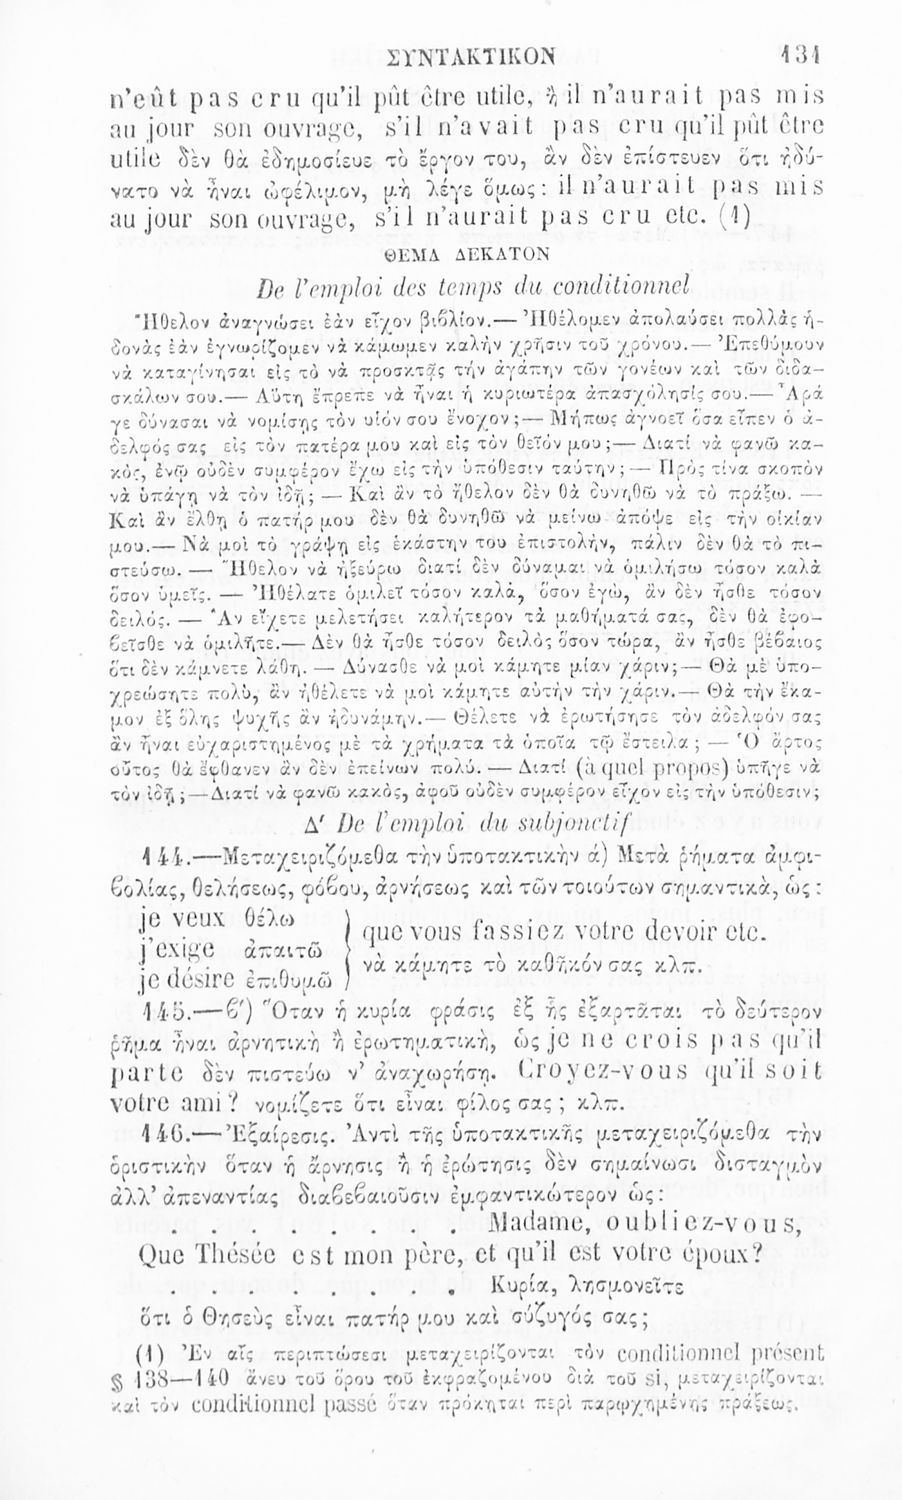 ΣΥΝΤΑΚΤΙΚΟΝ 131
n'eût pas cru qu'il pût être utile, ἢ il n'aurait pas mis
au jour son ouvrage, s'il n'avait pas cru qu'il pût être
utile δὲν θὰ ἐδημοσίευε τὸ ἔργον του, ἂν δὲν ἐπίστευεν ὅτι ἠδύ-
νατο νὰ ἦναι ὠφέλιμον, μὴ λέγε ὅμως: il n'aurait pas mis
au jour son ouvrage, s'il n'aurait pas cru etc. (1)
ΘΕΜΑ ΔΕΚΑΤΟΝ
De l'emploi des temps du conditionnel
Ἤθελον ἀναγνώσει ἐὰν εἶχον βιβλίον.— Ἠθέλομεν ἀπολαύσει πολλὰς ἡ-
δονὰς ἐὰν ἐγνωρίζομεν νὰ κάμωμεν καλὴν χρῆσιν τοῦ χρόνου.— Ἐπεθύμουν
νὰ καταγίνησαι εἰς τὸ νὰ προσκτᾷς τὴν ἀγάπην τῶν γονέων καὶ τῶν διδα-
σκάλων σου.— Αὕτη ἔπρεπε νὰ ἦναι ἡ κυριωτέρα ἀπασχόλησίς σου.— Ἆρά
γε δύνασαι νὰ νομίσῃς τὸν υἱόν σου ἔνοχον;— Μήπως ἀγνοεῖ ὅσα εἶπεν ὁ ἀ-
δελφός σας εἰς τὸν πατέρα μου καὶ εἰς τὸν θεῖόν μου;— Διατί νὰ φανῶ κα-
κὸς, ἐνῷ οὐδὲν συμφέρον ἔχω εἰς τὴν ὑπόθεσιν ταύτην;— Πρὸς τίνα σκοπὸν
νὰ ὑπάγῃ νὰ τὸν ἰδῇ; — Καὶ ἂν τὸ ἤθελον δὲν θὰ δυνηθῶ νὰ τὸ πράξω. —
Καὶ ἂν ἔλθῃ ὁ πατήρ μου δὲν θὰ δυνηθῶ νὰ μείνω ἀπόψε εἰς τὴν οἰκίαν
μου.— Νὰ μοὶ τὸ γράψῃ εἰς ἑκάστην του ἐπιστολὴν, πάλιν δὲν θὰ τὸ πι-
στεύσω. — Ἤθελον νὰ ἠξεύρω διατί δὲν δύναμαι νὰ ὁμιλήσω τόσον καλὰ
ὅσον ὑμεῖς. — Ἠθέλατε ὁμιλεῖ τόσον καλὰ, ὅσον ἐγὼ, ἂν δὲν ἦσθε τόσον
δειλός. — Ἂν εἴχετε μελετήσει καλήτερον τὰ μαθήματά σας, δὲν θὰ ἐφο-
βεῖσθε νὰ ὁμιλῆτε.— Δὲν θὰ ἦσθε τόσον δειλὸς ὅσον τώρα, ἂν ἦσθε βέβαιος
ὅτι δὲν κάμνετε λάθη. — Δύνασθε νὰ μοὶ κάμητε μίαν χάριν;— Θὰ μὲ ὑπο-
χρεώσητε πολὺ, ἂν ἠθέλετε νὰ μοὶ κάμητε αὐτὴν τὴν χάριν.— Θὰ τὴν ἔκα-
μον ἐξ ὅλης ψυχῆς ἂν ἠδυνάμην.— Θέλετε νὰ ἐρωτήσησε τὸν ἀδελφόν σας
ἂν ἦναι εὐχαριστημένος μὲ τὰ χρήματα τὰ ὁποῖα τῷ ἔστειλα; — Ὁ ἄρτος
οὗτος θὰ ἔφθανεν ἂν δὲν ἐπείνων πολύ. — Διατί (à quel propos) ὑπῆγε νὰ
τὸν ἰδῇ;—Διατί νὰ φανῶ κακὸς, ἀφοῦ οὐδὲν συμφέρον εἶχον εἰς τὴν ὑπόθεσιν;
Δ′ De l'emploi du subjonctif
144.—Μεταχειριζόμεθα τὴν ὑποτακτικὴν ά) Μετὰ ῥήματα ἀμφι-
βολίας, θελήσεως, φόβου, ἀρνήσεως καὶ τῶν τοιούτων σημαντικὰ, ὡς:
je veux θέλω
j'exige ἀπαιτῶ
je désire ἐπιθυμῶ
que vous fassiez votre devoir etc.
νὰ κάμητε τὸ καθῆκόν σας κλπ.
145.—β′) Ὅταν ἡ κυρία φράσις ἐξ ἧς ἐξαρτᾶται τὸ δεύτερον
ῥῆμα ἦναι ἀρνητικὴ ἢ ἐρωτηματικὴ, ὡς je ne crois pas qu'il
parte δὲν πιστεύω ν' ἀναχωρήσῃ. Croyez-vous qu'il soit
votre ami? νομίζετε ὅτι εἶναι φίλος σας; κλπ.
146.—Ἐξαίρεσις. Ἀντὶ τῆς ὑποτακτικῆς μεταχειριζόμεθα τὴν
ὁριστικὴν ὅταν ἡ ἄρνησις ἢ ἡ ἐρώτησις δὲν σημαίνωσι δισταγμὸν
ἀλλ' ἀπεναντίας διαβεβαιοῦσιν ἐμφαντικώτερον ὡς:
. . . . . . . . Madame, oubliez-vous,
Que Thésée est mon père, et qu'il est votre époux?
. . . . . . . . Κυρία, λησμονεῖτε
ὅτι ὁ Θησεὺς εἶναι πατήρ μου καὶ σύζυγός σας;
(1) Ἐν αἷς περιπτώσεσι μεταχειρίζονται τὸν conditionnel présent
§ 138—140 ἄνευ τοῦ ὅρου τοῦ ἐκφραζομένου διὰ τοῦ si, μεταχειρίζονται
καὶ τὸν conditionnel passé ὅταν πρόκηται περὶ παρῳχημένης πράξεως.